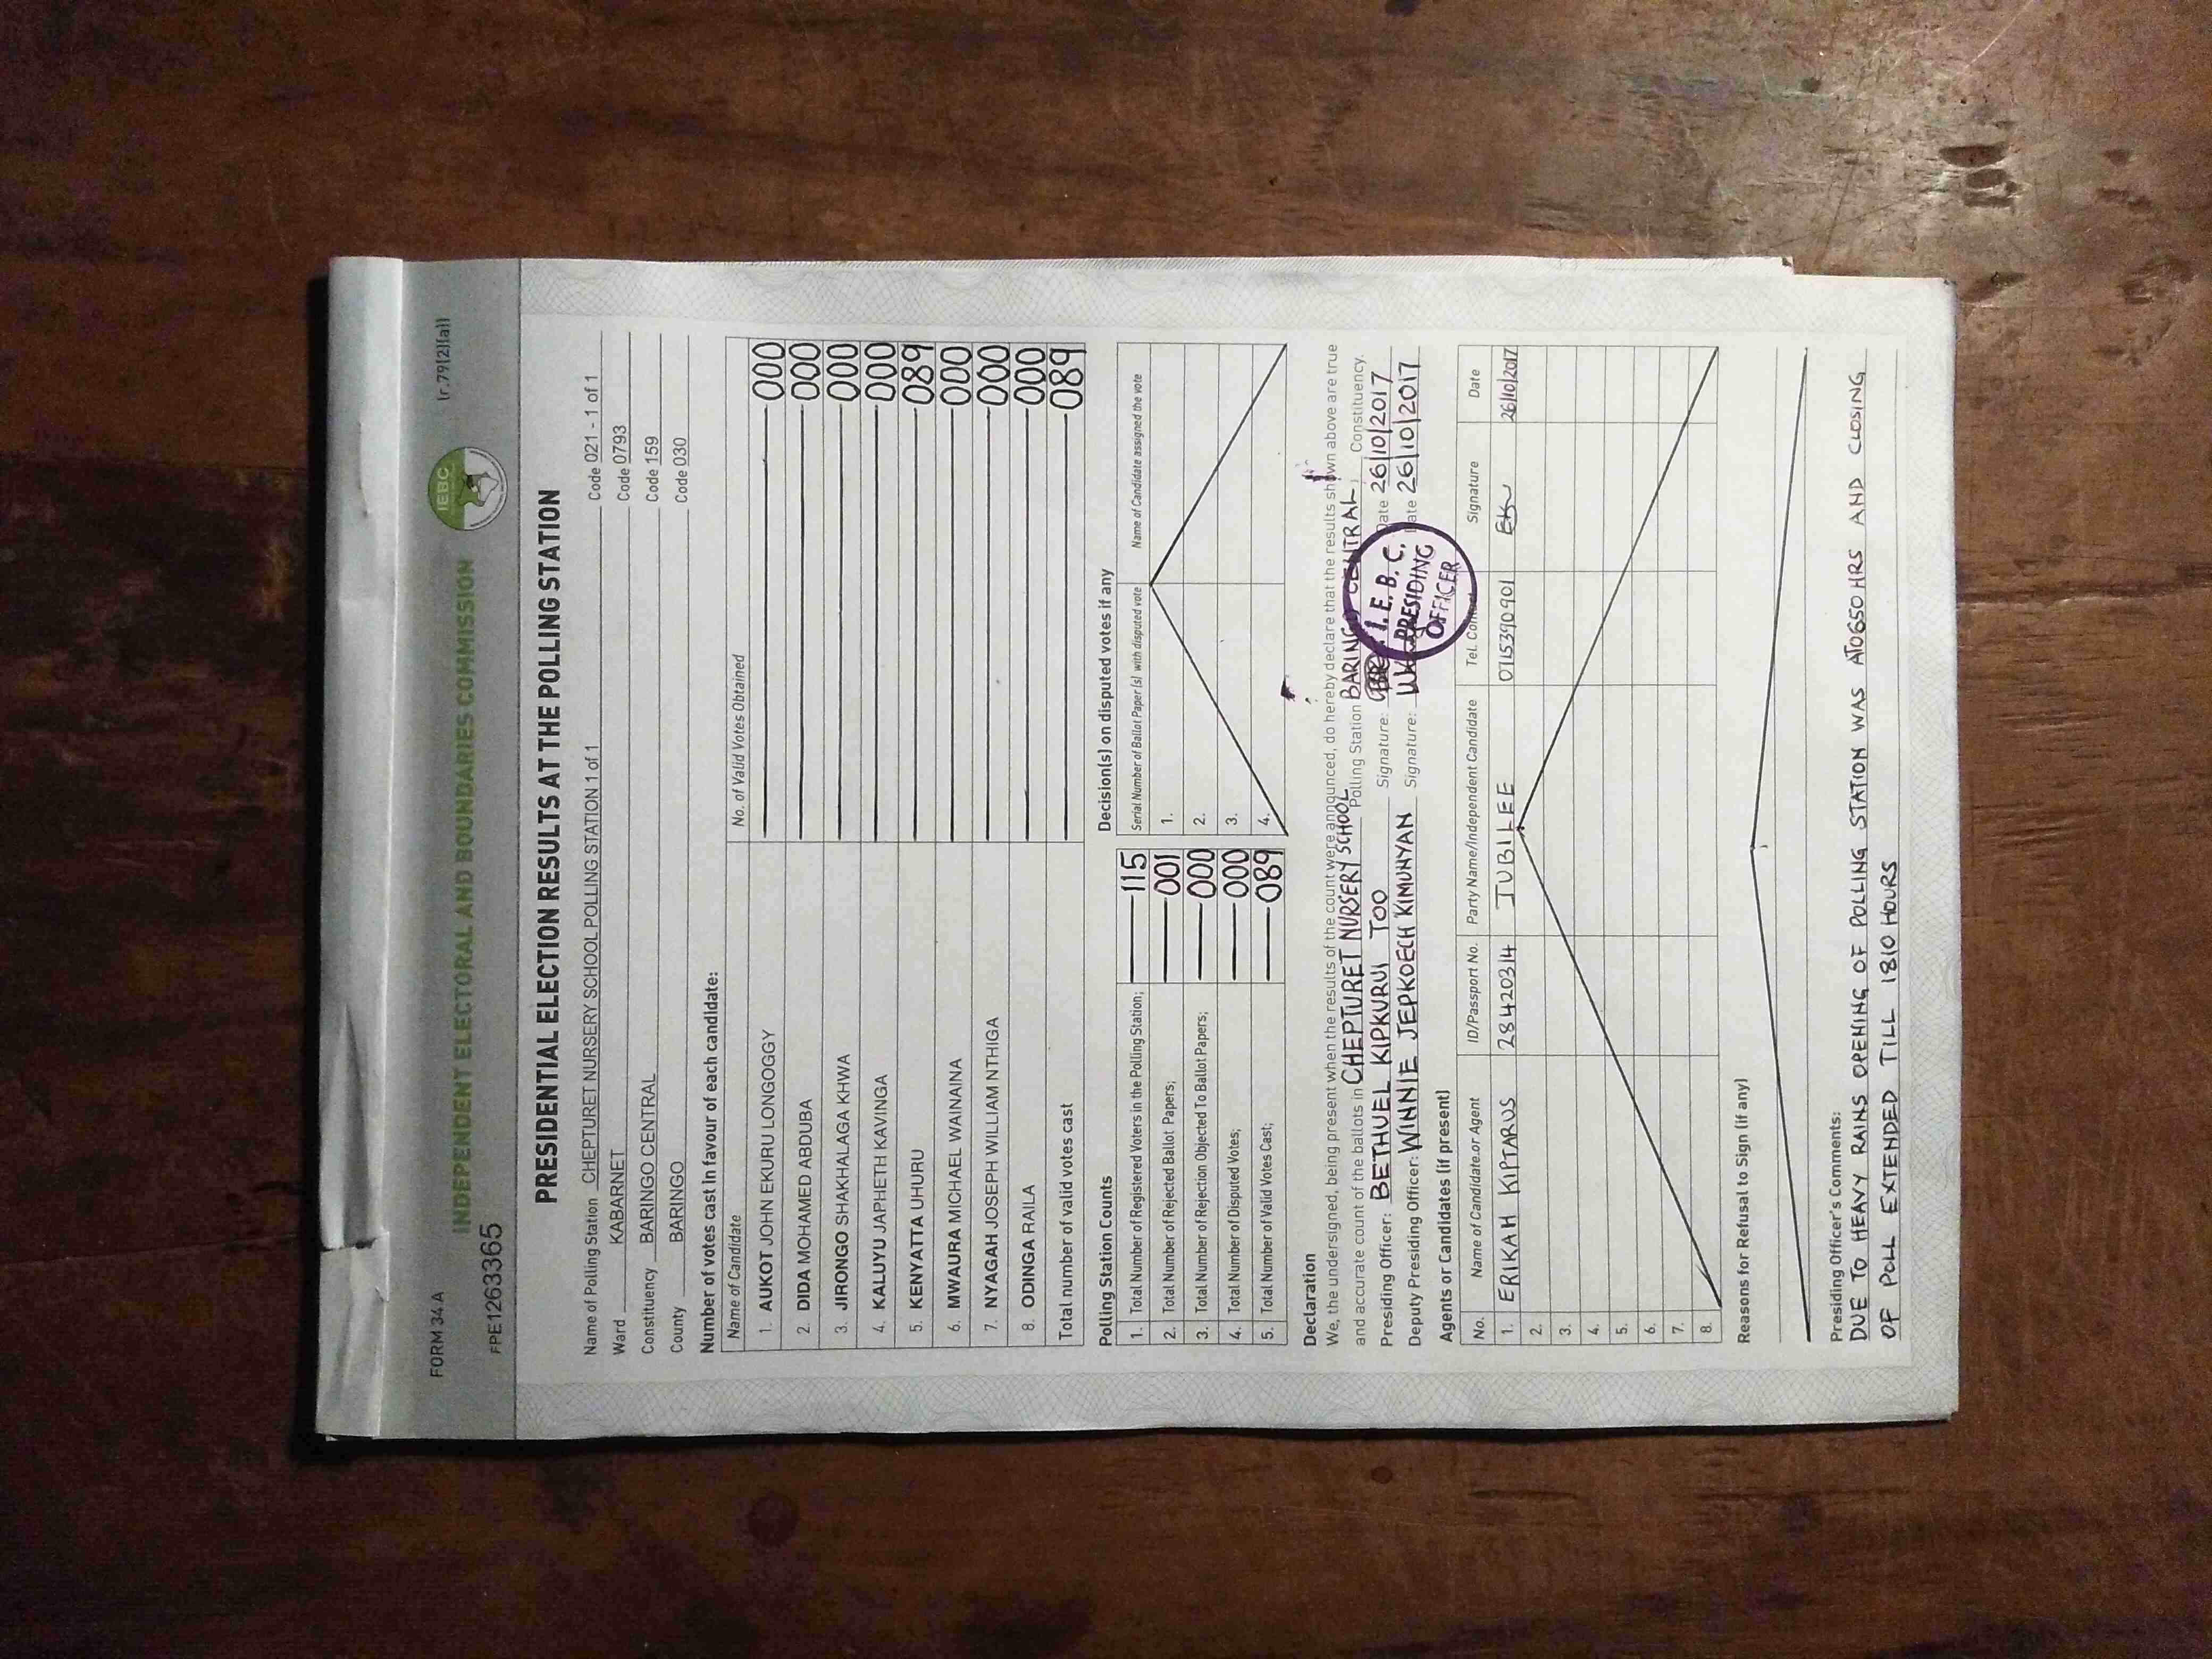 FORM 34 A
(r.79(2)(a))
IEBC
INDEPENDENT ELECTORAL AND BOUNDARIES COMMISSION
FPE1263365
PRESIDENTIAL ELECTION RESULTS AT THE POLLING STATION
Name of Polling Station CHEPTURET NURSERY SCHOOL POLLING STATION 1 of 1 Code 021 - 1 of 1
Ward KABARNET Code 0793
Constituency BARINGO CENTRAL Code 159
County BARINGO Code 030
Number of votes cast in favour of each candidate:
Name of Candidate No. of Valid Votes Obtained
1. AUKOT JOHN EKURU LONGOGGY 000
2. DIDA MOHAMED ABDUBA 000
3. JIRONGO SHAKHALAGA KHWA 000
4. KALUYU JAPHETH KAVINGA 000
5. KENYATTA UHURU 089
6. MWAURA MICHAEL WAINAINA 000
7. NYAGAH JOSEPH WILLIAM NTHIGA 000
8. ODINGA RAILA 000
Total number of valid votes cast 089
Polling Station Counts
1. Total Number of Registered Voters in the Polling Station; 115
2. Total Number of Rejected Ballot Papers; 001
3. Total Number of Rejection Objected To Ballot Papers; 000
4. Total Number of Disputed Votes; 000
5. Total Number of Valid Votes Cast; 089
Decision(s) on disputed votes if any
Serial Number of Ballot Paper (s) with disputed vote Name of Candidate assigned the vote
1.
2.
3.
4.
Declaration
We, the undersigned, being present when the results of the count were announced, do hereby declare that the results shown above are true
and accurate count of the ballots in CHEPTURET NURSERY SCHOOL Polling Station BARINGO CENTRAL Constituency.
Presiding Officer: BETHUEL KIPKURUI TOO Signature: Date 26/10/2017
Deputy Presiding Officer: WINNIE JEPKOECH KIMUNYAN Signature: Date 26/10/2017
I.E.B.C.
PRESIDING
OFFICER
Agents or Candidates (if present)
No. Name of Candidate.or Agent ID/Passport No. Party Name/Independent Candidate Tel. Contact Signature Date
1. ERIKAH KIPTARUS 28420314 JUBILEE 0715390901 26/10/2017
2.
3.
4.
5.
6.
7.
8.
Reasons for Refusal to Sign (if any)
Presiding Officer's Comments:
DUE TO HEAVY RAINS OPENING OF POLLING STATION WAS AT0650HRS AND CLOSING
OF POLL EXTENDED TILL 1810 HOURS